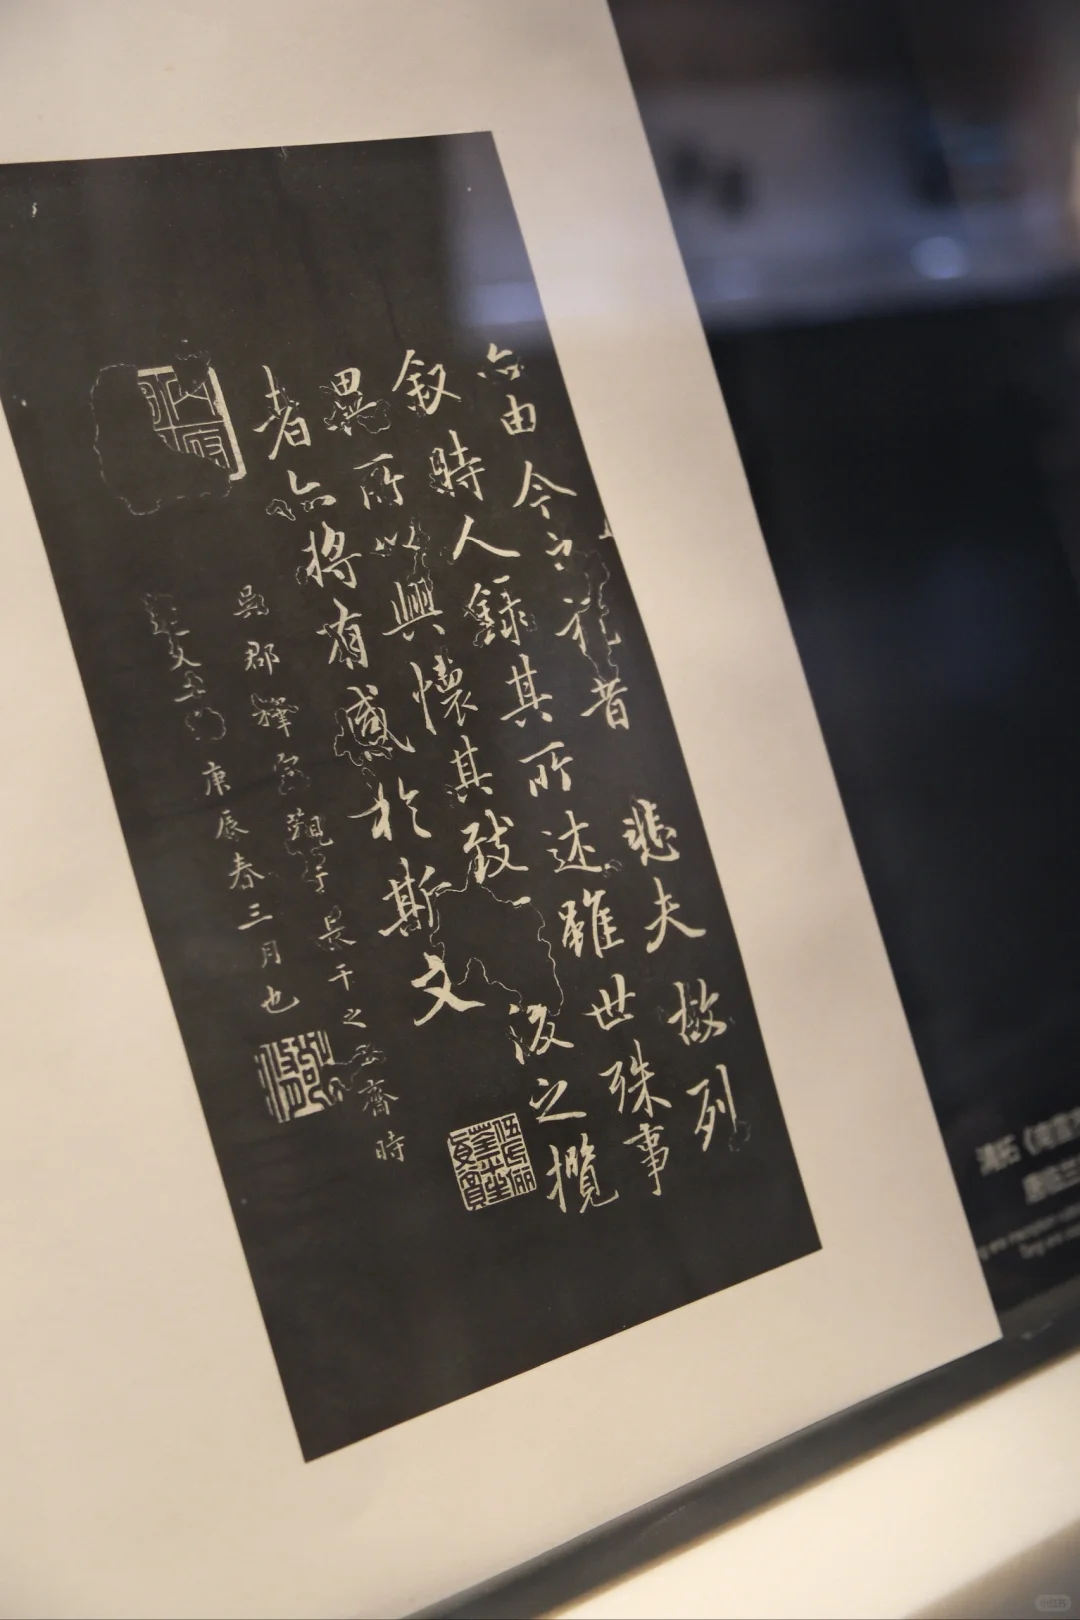 亦由今之視昔 悲夫 故列
叙時人錄其所述雖世殊事
異所以興懷其致一 後之攬
者亦將有感於斯文
吳郡釋 觀于 之 齋時
庚辰春三月也
內府
清拓